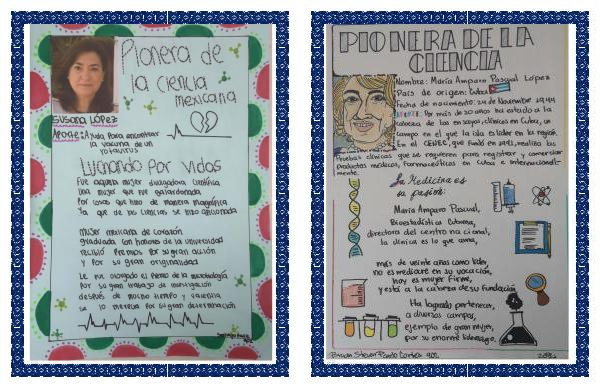 Pionera de
la ciencia
mexicana
Susana López
Aporte: Ayuda para encontrar
la vacuna de un
rotavirus
Luchando Por Vidas
Fue aquella mujer divulgadora científica
Una mujer que fue galardonada
Por cosas que hizo de manera magnífica
Ya que de las ciencias se hizo aficionada
Mujer mexicana de corazón
graduada con honores de la universidad
recibió Premios Por su gran acción
y Por su gran originalidad
Le fue otorgado el Premio de la
Por su gran trabajo de investigación
después de mucho tiempo y paciencia
se lo merecía Por su gran determinación
PIONERA DE LA
CIENCIA
Nombre: María Amparo Pascual López
País de origen: Cuba
Fecha de nacimiento: 24 de Noviembre 1944
Aporte: Por más de 20 años ha estado a la
cabeza de los ensayos clínicos en Cuba, un
campo en el que la isla es líder en la región.
En el CENCEC, que fundó en 1991, realiza las
Pruebas clínicas que se requieren para registrar y comerciar
productos médicos, farmacéuticos en Cuba e internacional-
mente.
La Medicina es
su pasión:
María Amparo Pascual,
Bioestadística Cubana,
directora del centro nacional,
la clínica es lo que ama,
más de veinte años como líder,
no es mediocre en su vocación,
hoy es mujer firme,
y está a la cabeza de su fundación
Ha logrado pertenecer,
a diversos campos,
ejemplo de gran mujer,
por su enorme liderazgo.
Brayan Steven Pardo Cortes 902